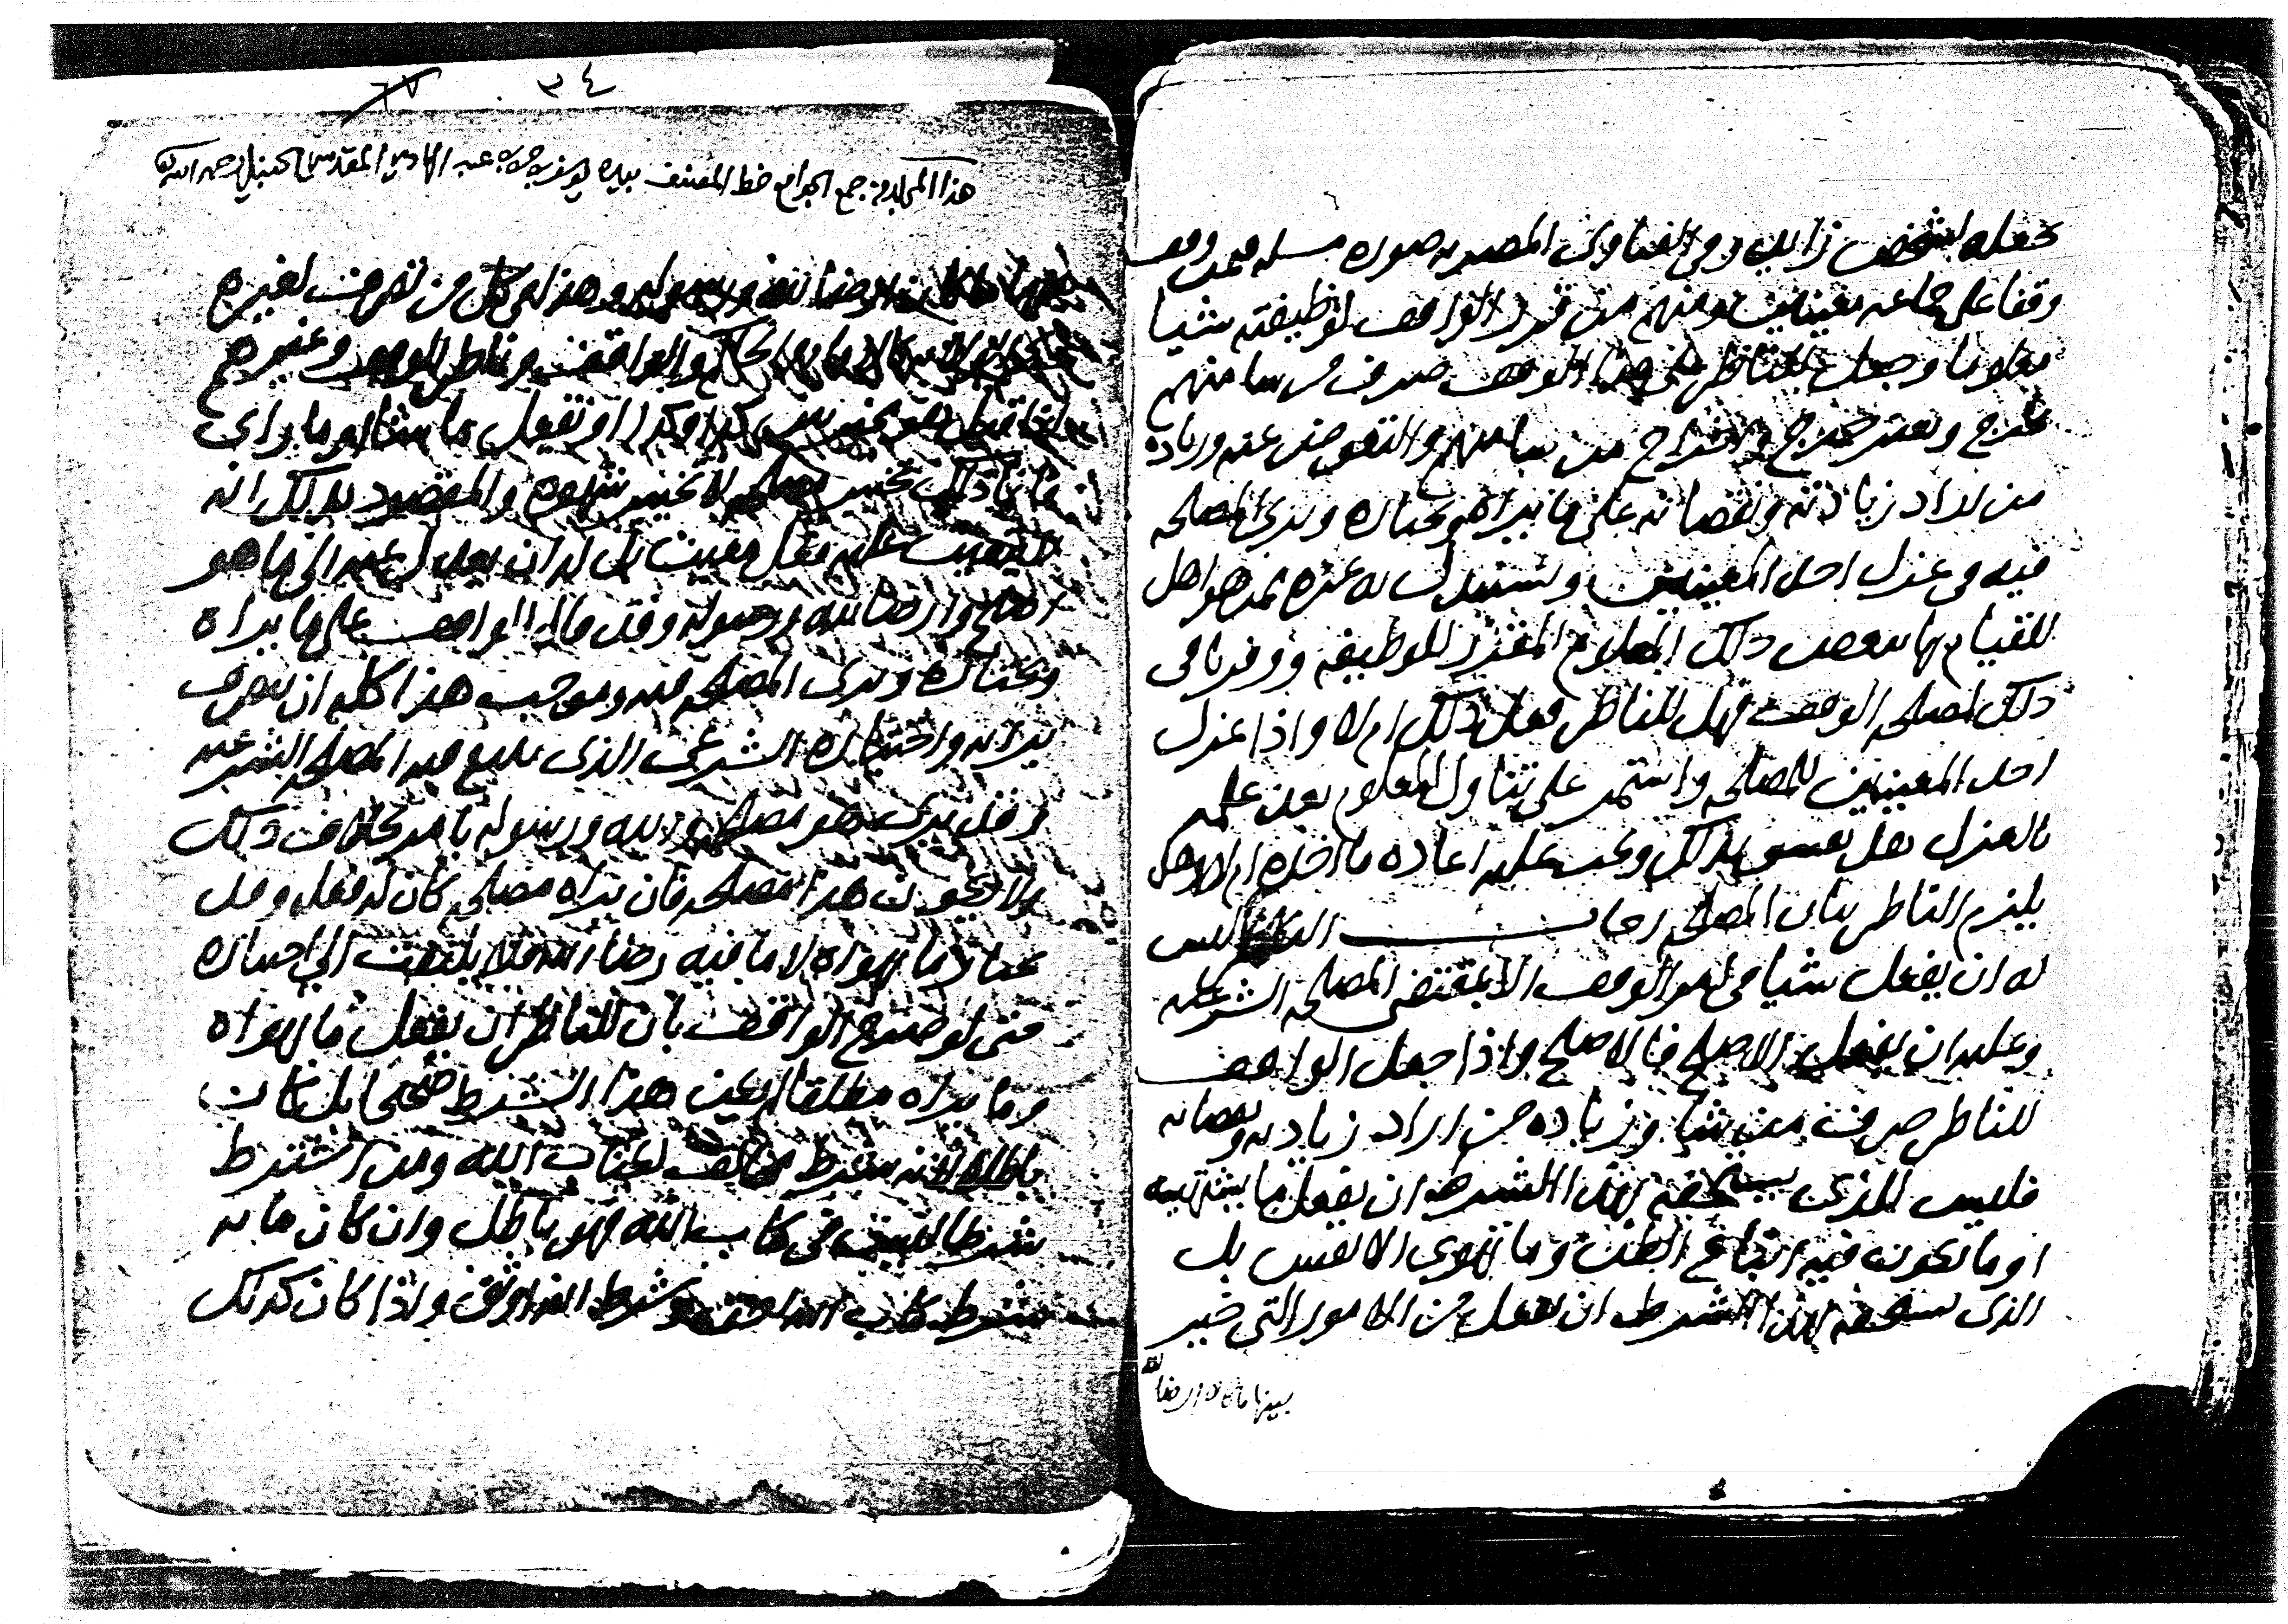 يجعله لشخص زايد وفي الفتاوى المصريه صوره مسله فيمن وقف
وقفا على جماعه معينين ومنهم من قدر الواقف لوظيفته شيا
معلوما وجعل للناظر على هذا الوقف صرف من شا منهم
بخرج وبغير خرج واخراج من شا منهم والتعويض عنه وزياده
من اراد زيادته ونقصانه على ما يراه ويختاره ويرى المصلحه
فيه في عزل احد المعينين واستبدل به غيره ممن هو اهل
للقيام بها ببعض ذلك المعلوم المقرر للوظيفه ووفر باقي
ذلك لمصلحه الوقف فهل للناظر فعل ذلك ام لا واذا عزل
احد المعينين للمصلحه واستمر على تناول المعلوم بعد علمه
بالعزل هل يفسق بذلك ويجب عليه اعاده ما اخذه ام لا وهل
يلزم الناظر بيان المصلحه اجاب ليس
له ان يفعل شيا في امر الوقف الا بمقتضى المصلحه الشرعيه
وعليه ان يفعل الاصلح فالاصلح واذا جعل الواقف
للناظر صرف من شا وزياده من اراد زيادته ونقصانه
فليس للذي يستحقه بهذا الشرط ان يفعل ما يشتهيه
او ما يكون فيه اتباع الظن وما تهوى الانفس بل
الذي يستحقه بهذا الشرط ان يفعل من الامور التي خير
بينها ما كان ارضا لله
٣٤
هذا المجلد من جمع الجوامع خط المصنف بيده يوسف بن عبد الهادي المقدسي الحنبلي رحمه الله
ما كان ارضا لله ورسوله وهذا في كل من تصرف لغيره
كالامام والحاكم والواقف وناظر الوقف وغيرهم
قيل هو مخير بين كذا وكذا او تفعل ما شا وما راى
فانما ذلك تخيير مصلحه لا تخيير شهوه والمقصود بذلك انه
لا يتعين عليه فعل معين بل له ان يعدل عنه الى ما هو
اصلح وارضا لله ورسوله وقد قال الواقف على ما يراه
ويختاره ويرى المصلحه فيه وموجب هذا كله ان يتصرف
برايه واختياره الشرعي الذي يتبع فيه المصلحه الشرعيه
وقد يرى هو مصلحه والله ورسوله يامر بخلاف ذلك
ولا يكون هذا مصلحه فان يراه مصلحه كان له فعله وقد
يختار ما يهواه لا ما فيه رضا الله فلا يلتفت الى اختياره
حتى لو صرح الواقف بان للناظر ان يفعل ما يهواه
وما يراه مطلقا لم يكن هذا الشرط صحيحا بل كان
باطلا لانه شرط مخالف لكتاب الله ومن اشترط
شرطا ليس في كتاب الله فهو باطل وان كان مايه
شرط كتاب الله احق وشرط الله اوثق واذا كان كذلك